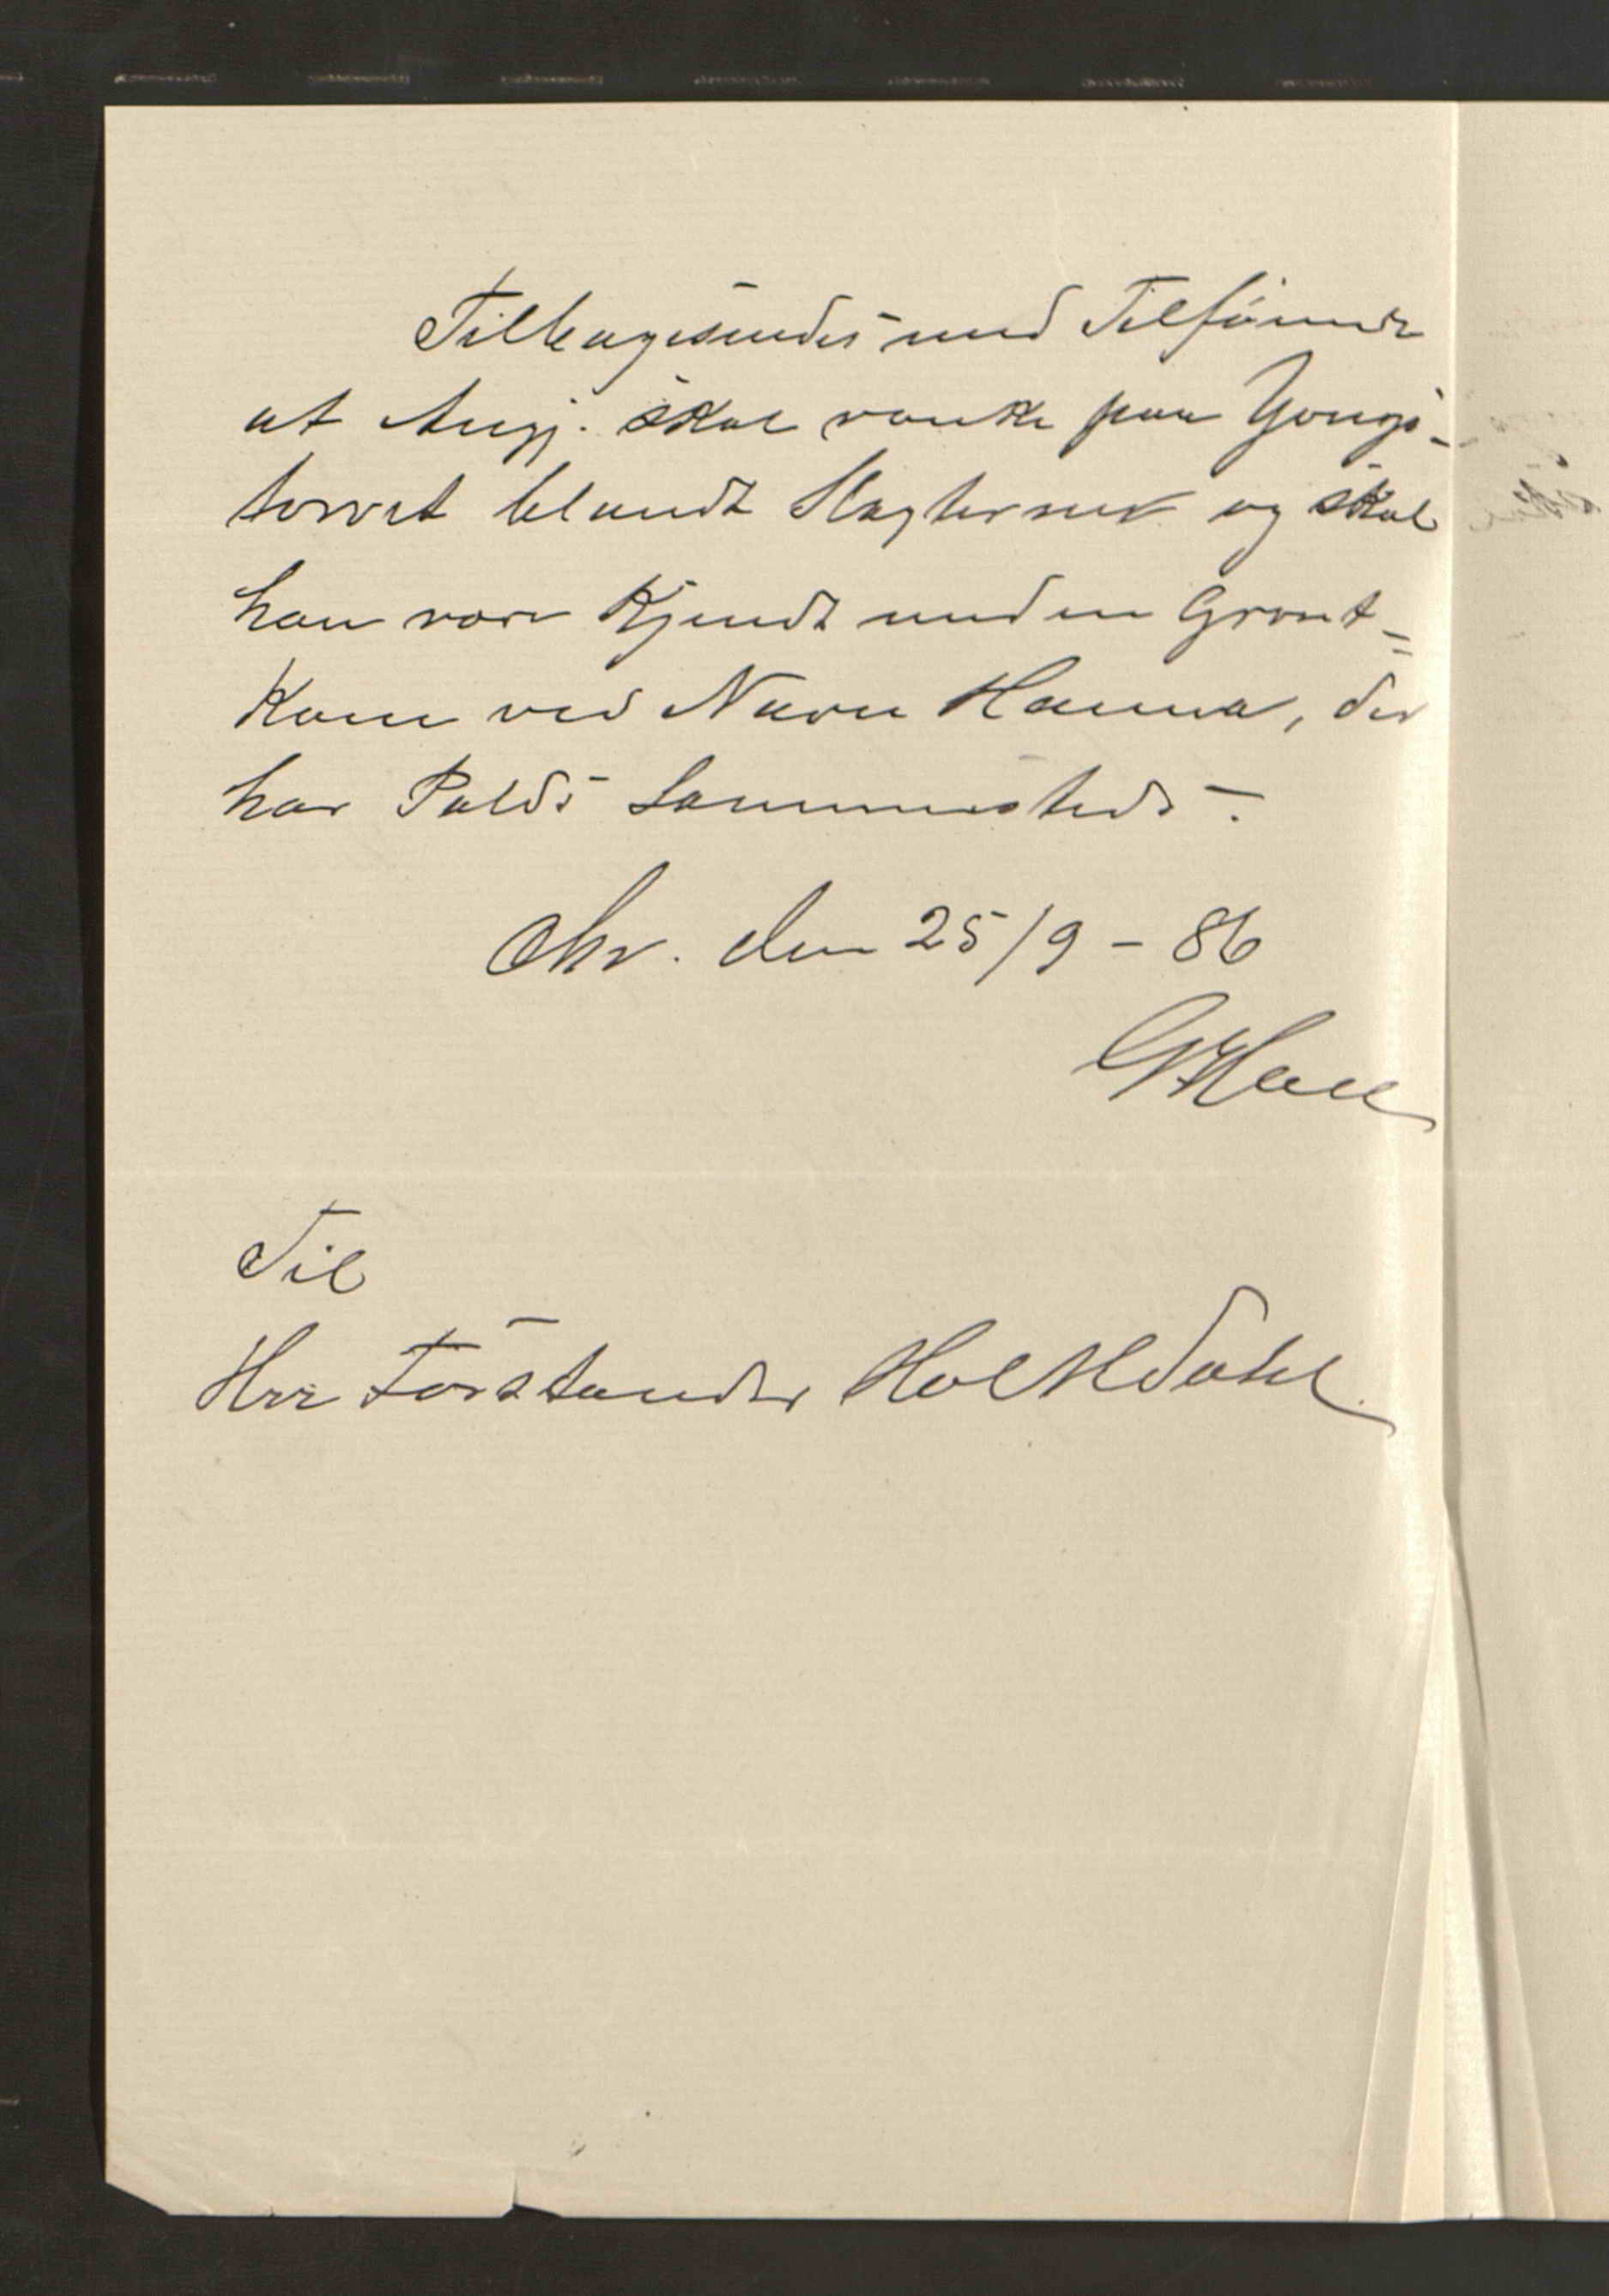 Tilbagesendes med Tilføiende
at Angj. skal vanke paa Youngs-
torvet blandt Slagterne og skal
han være Kjendt med en Grønt=
Kone ved Navn Hanna, der
har Plads sammesteds.
Chr. den 25/9 - 86
GHall
Til
Hrr Forstander Holtdahl.